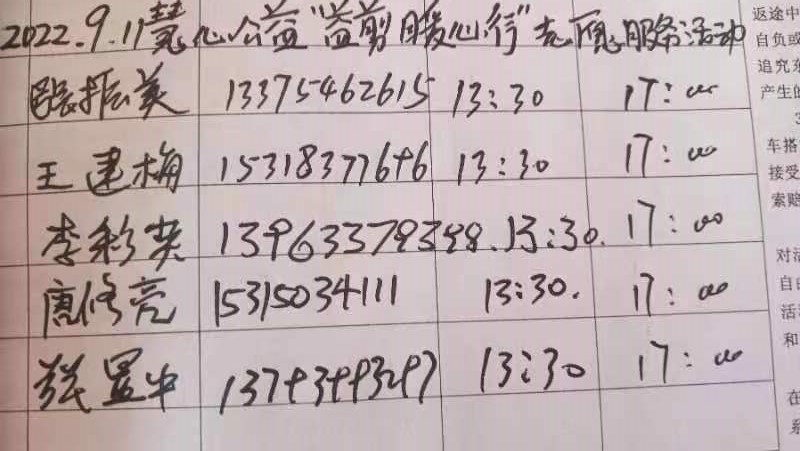 2022.9.11慧心公益"益剪暖心行"志愿服务活动
振美 13375462615 13:30 17:00
王建梅 15318377646 13:30 17:00
李彩英 13963379399. 13:30. 17:00
唐修亮 15315034111 13:30. 17:00
张置中 13:30 17:00
返途中
自负或
追究
产生的
3
车搭
接受
索赔
对活
自由
活动
和
在
系